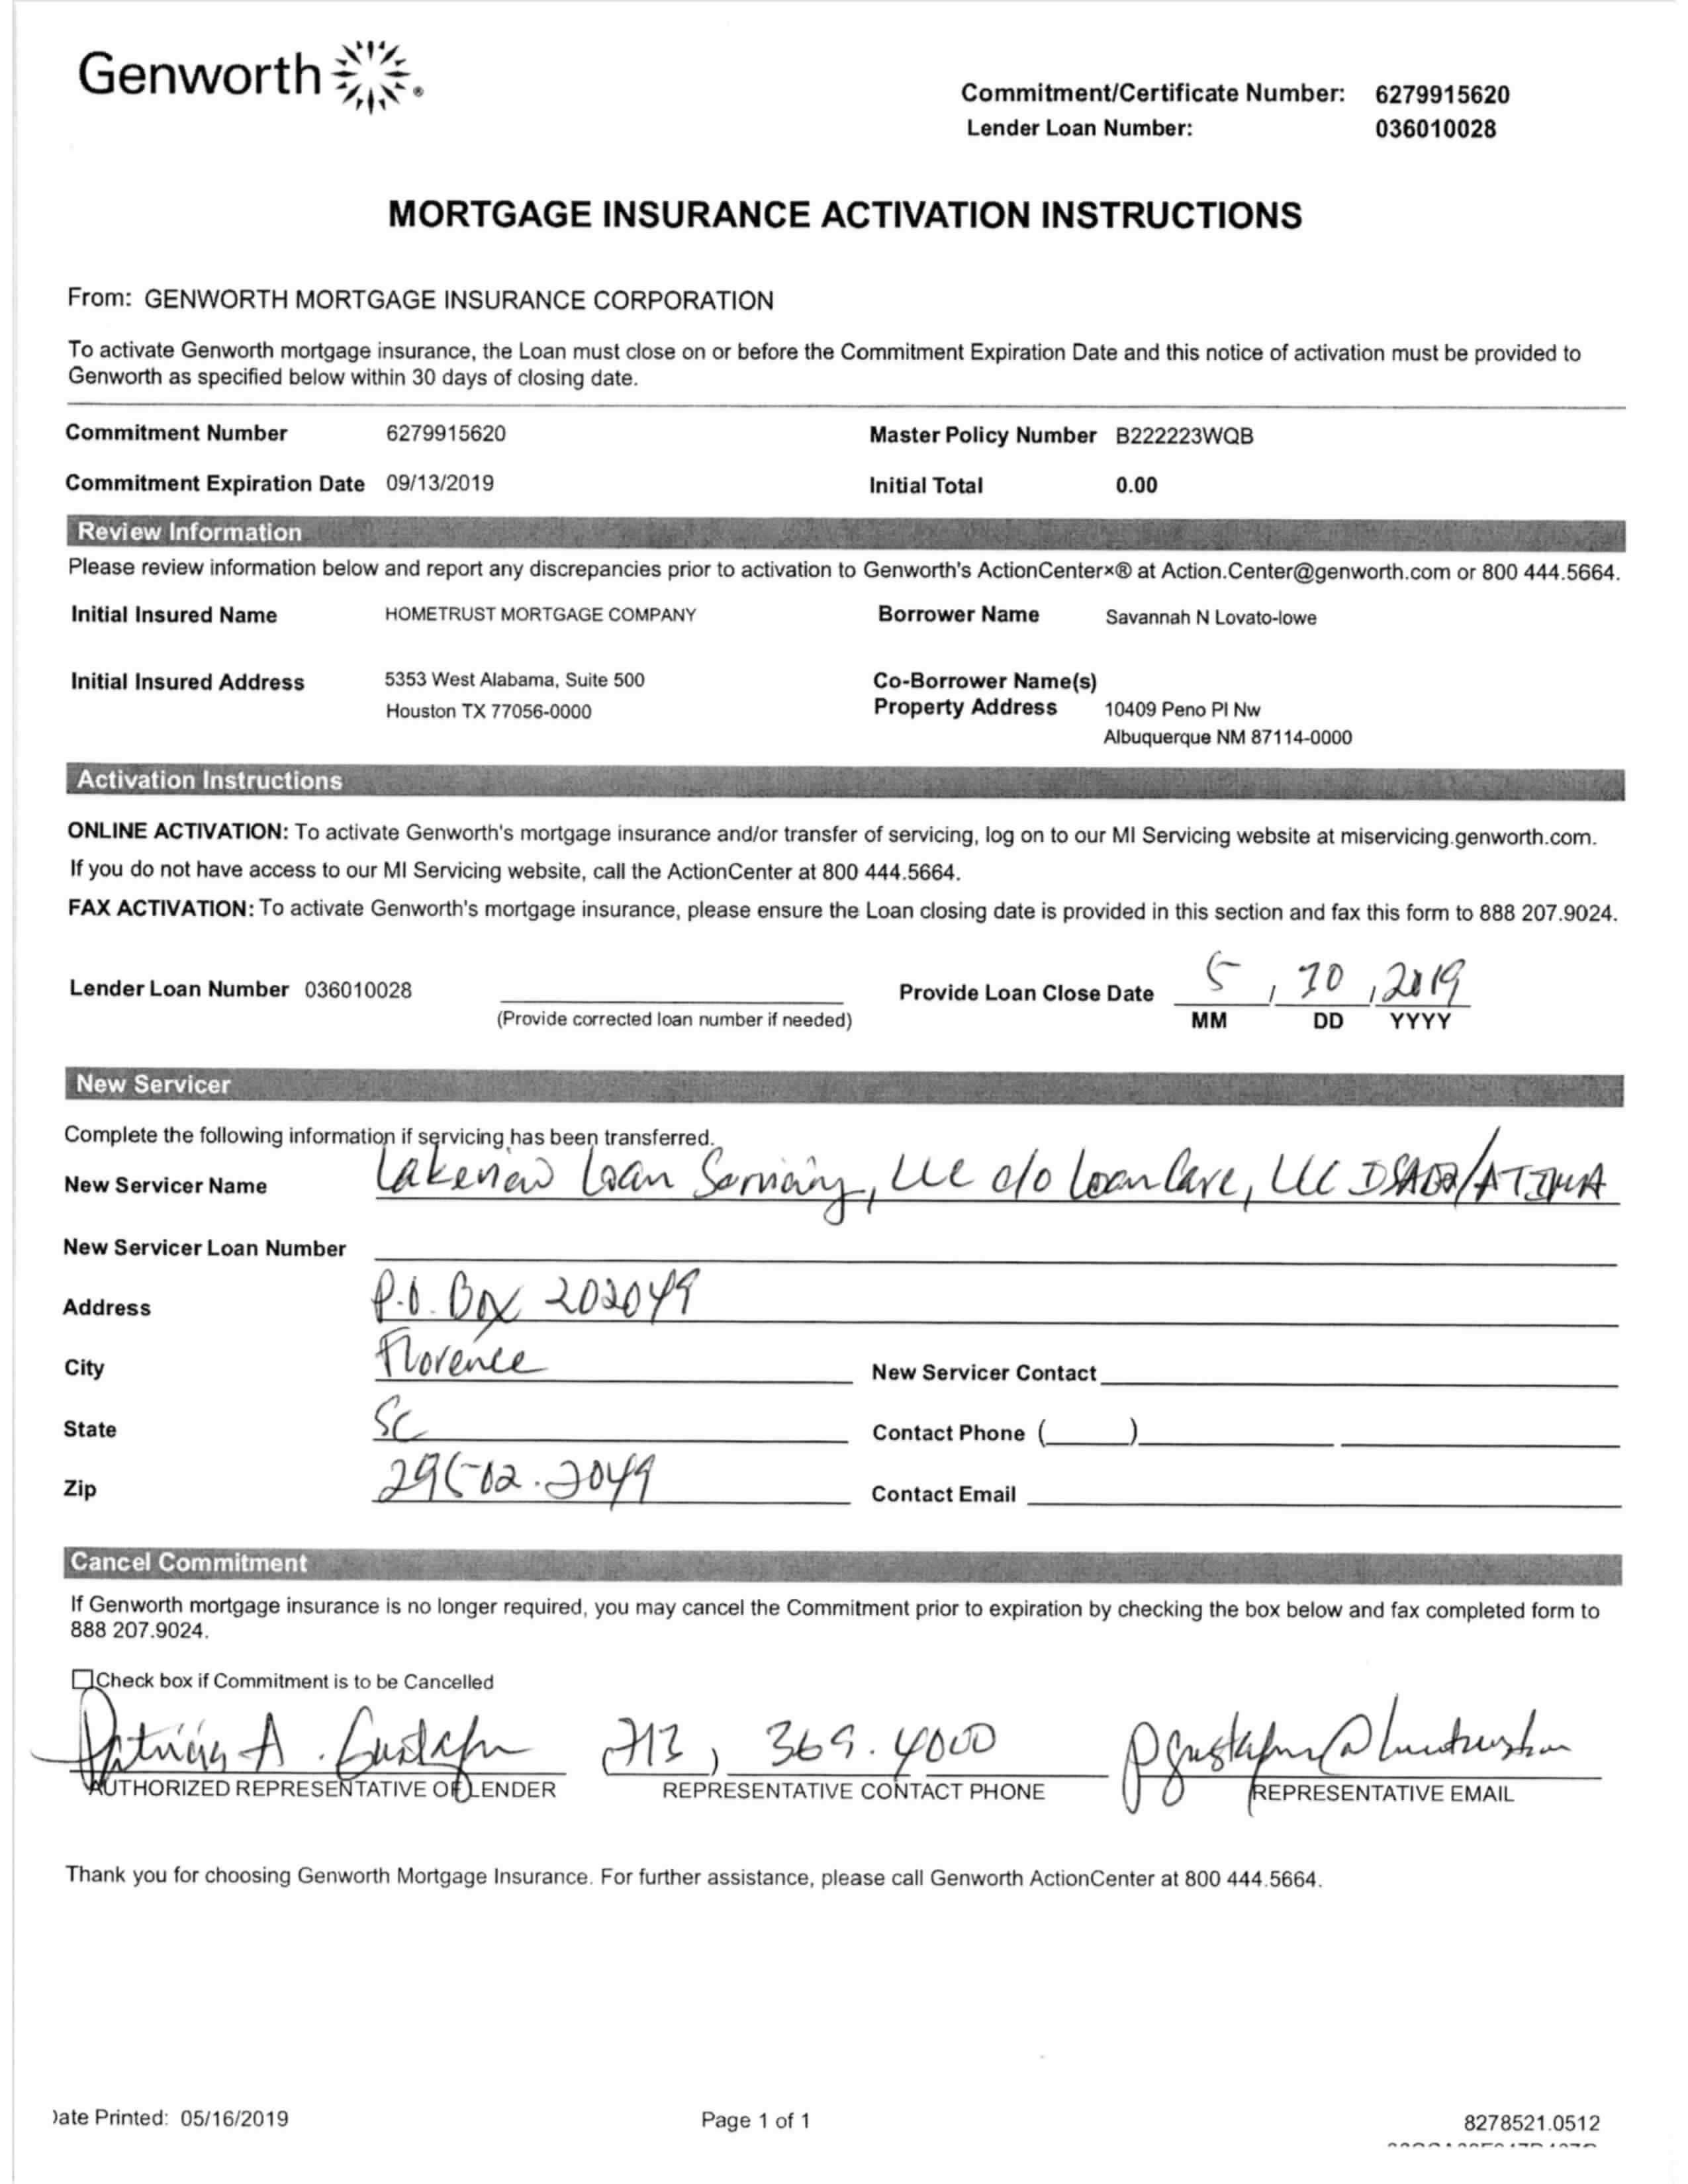 Genworth
Commitment/Certificate Number: 6279915620
Lender Loan Number: 036010028
MORTGAGE INSURANCE ACTIVATION INSTRUCTIONS
From: GENWORTH MORTGAGE INSURANCE CORPORATION
To activate Genworth mortgage insurance, the Loan must close on or before the Commitment Expiration Date and this notice of activation must be provided to
Genworth as specified below within 30 days of closing date.
Commitment Number 6279915620 Master Policy Number B222223WQB
Commitment Expiration Date 09/13/2019 Initial Total 0.00
Review Information
Please review information below and report any discrepancies prior to activation to Genworth's ActionCenter×® at Action.Center@genworth.com or 800 444.5664.
Initial Insured Name HOMETRUST MORTGAGE COMPANY Borrower Name Savannah N Lovato-lowe
Initial Insured Address 5353 West Alabama, Suite 500 Co-Borrower Name(s)
Houston TX 77056-0000 Property Address 10409 Peno Pl Nw
Albuquerque NM 87114-0000
Activation Instructions
ONLINE ACTIVATION: To activate Genworth's mortgage insurance and/or transfer of servicing, log on to our MI Servicing website at miservicing.genworth.com.
If you do not have access to our MI Servicing website, call the ActionCenter at 800 444.5664.
FAX ACTIVATION: To activate Genworth's mortgage insurance, please ensure the Loan closing date is provided in this section and fax this form to 888 207.9024.
Lender Loan Number 036010028 Provide Loan Close Date 5 / 30 / 2019
(Provide corrected loan number if needed) MM DD YYYY
New Servicer
Complete the following information if servicing has been transferred.
New Servicer Name Lakeview Loan Servicing, LLC c/o LoanCare, LLC /ATIMA
New Servicer Loan Number
Address P.O. Box 202049
City Florence New Servicer Contact
State SC Contact Phone ( )
Zip 29502-2049 Contact Email
Cancel Commitment
If Genworth mortgage insurance is no longer required, you may cancel the Commitment prior to expiration by checking the box below and fax completed form to
888 207.9024.
Check box if Commitment is to be Cancelled
Patricia A. 713) 369.4000
AUTHORIZED REPRESENTATIVE OF LENDER REPRESENTATIVE CONTACT PHONE REPRESENTATIVE EMAIL
Thank you for choosing Genworth Mortgage Insurance. For further assistance, please call Genworth ActionCenter at 800 444.5664.
ate Printed: 05/16/2019 Page 1 of 1 8278521.0512